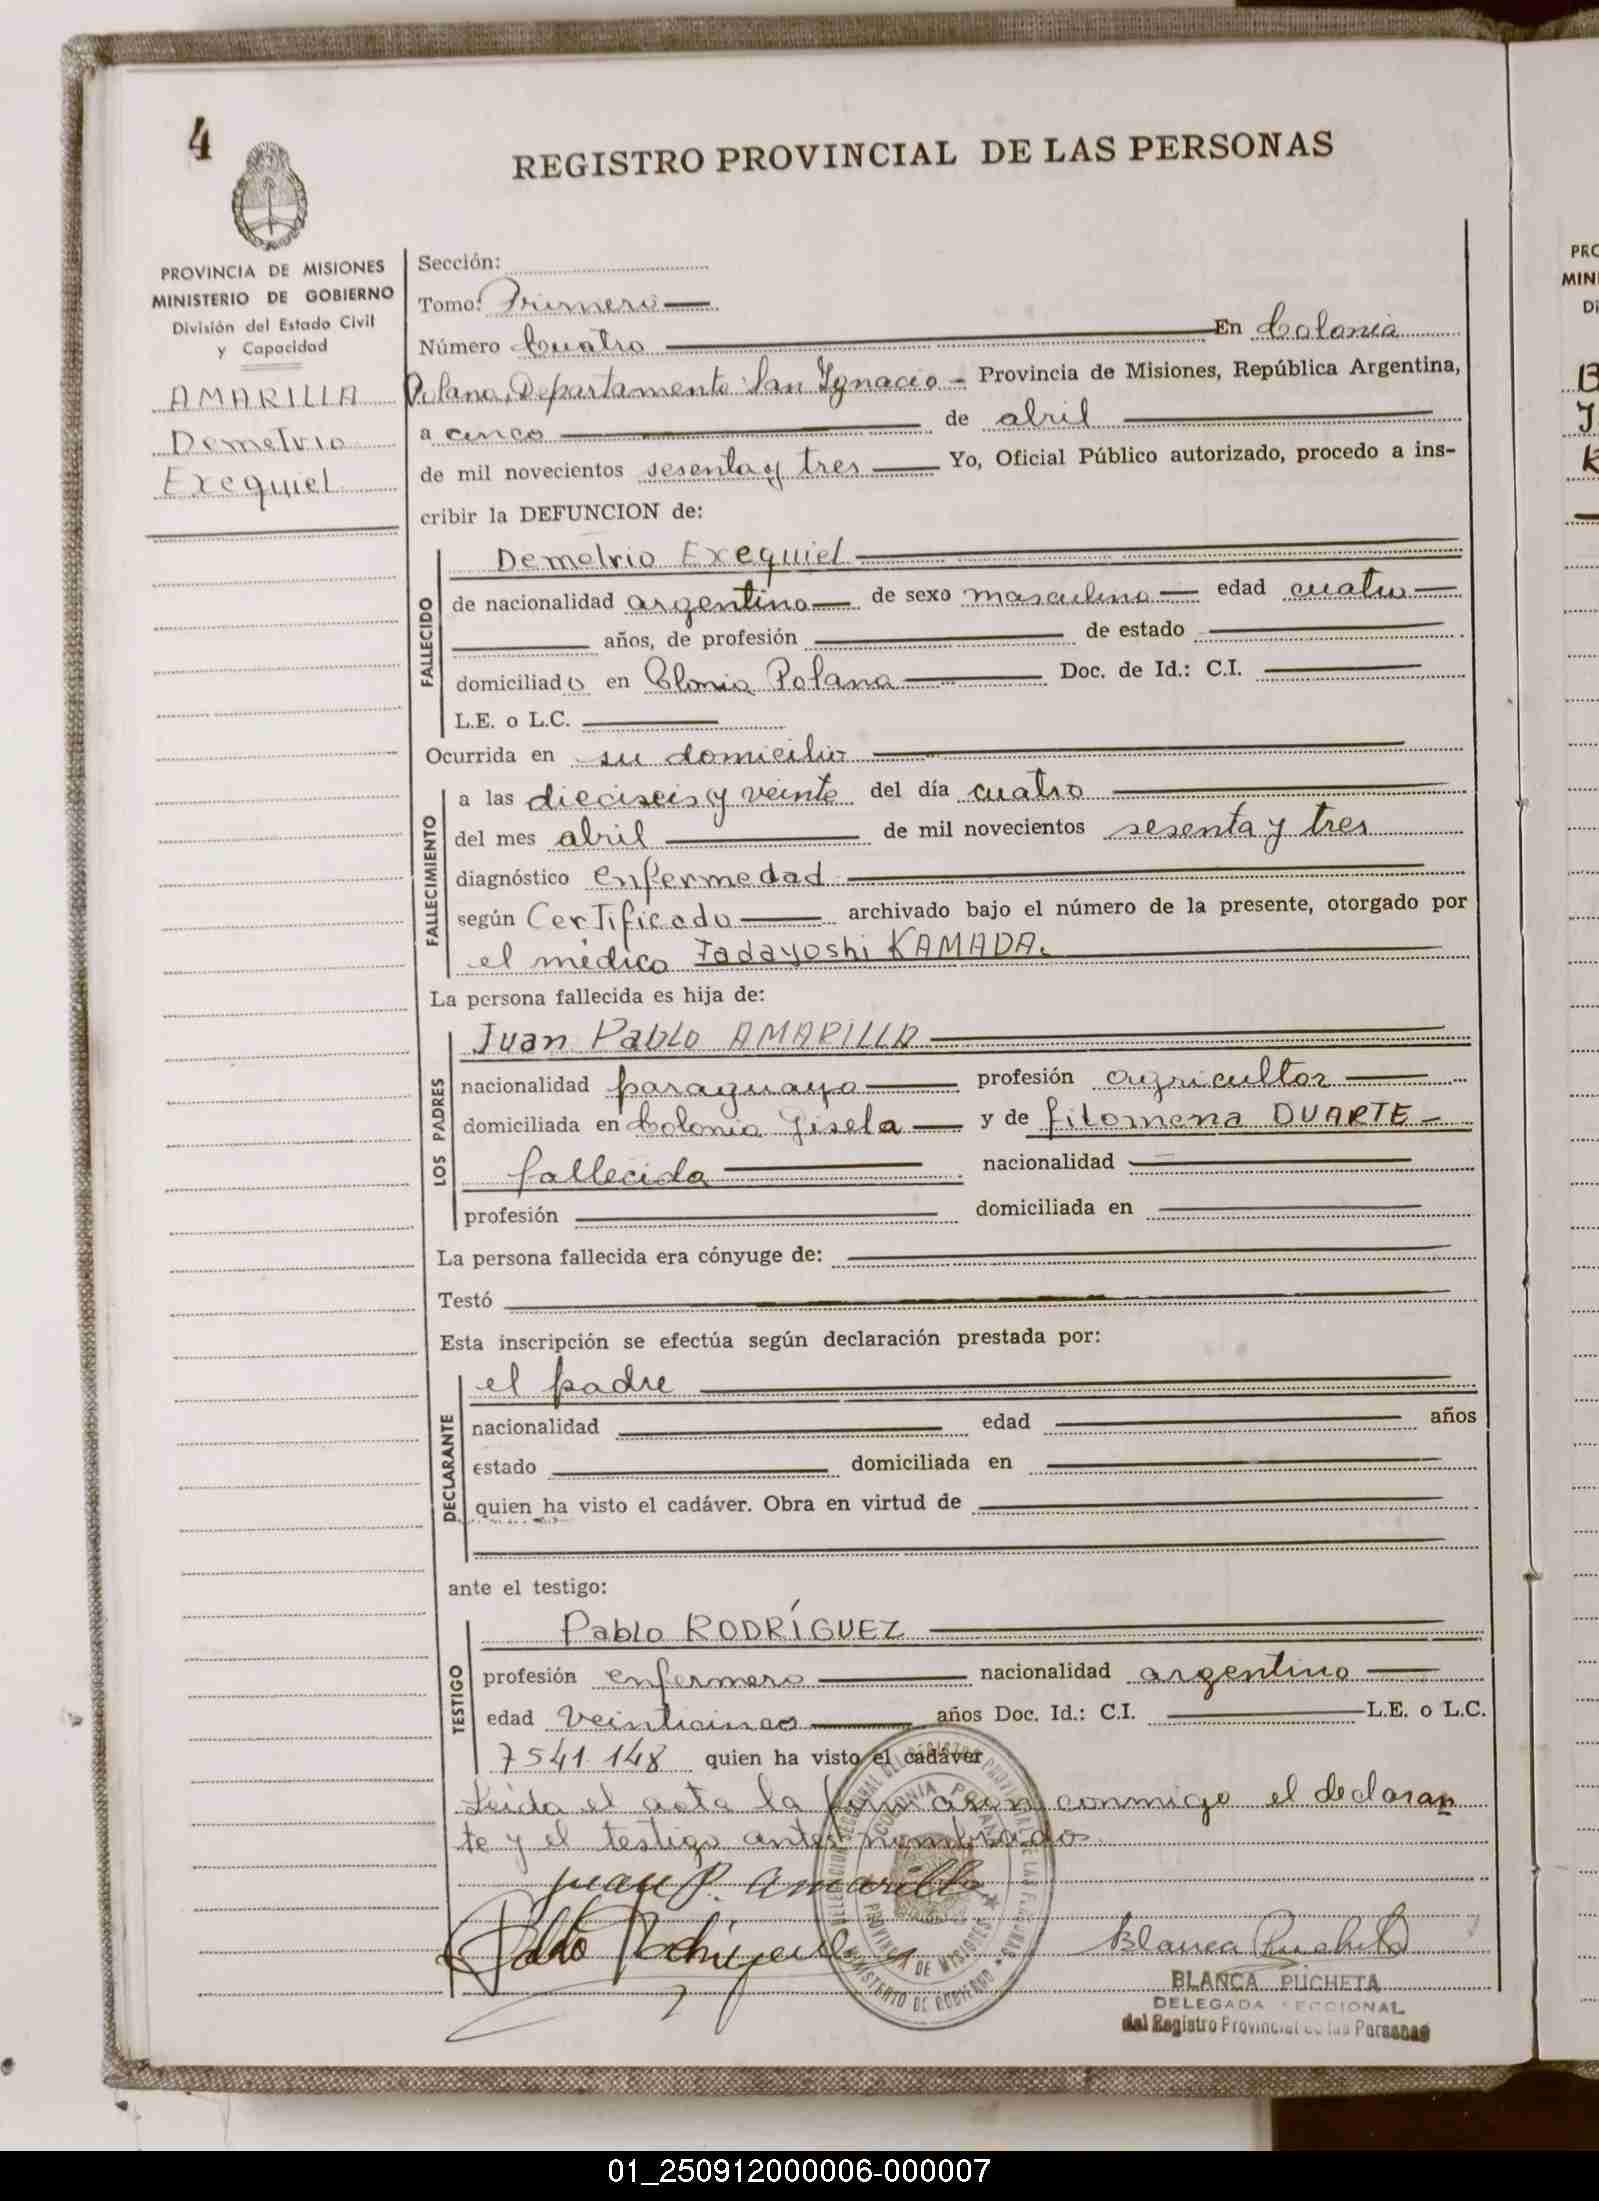 4
REGISTRO PROVINCIAL DE LAS PERSONAS
PROVINCIA DE MISIONES
MINISTERIO DE GOBIERNO
División del Estado Civil
y Capacidad
AMARILLA
Demetrio
Exequiel
Sección:
Tomo: Primero
Número Cuatro En Colonia
Polana, Departamento San Ygnacio - Provincia de Misiones, República Argentina,
a cinco de abril
de mil novecientos sesenta y tres Yo, Oficial Público autorizado, procedo a ins-
cribir la DEFUNCION de:
FALLECIDO
Demetrio Exequiel
de nacionalidad argentino de sexo masculino edad cuatro
años, de profesión de estado
domiciliado en Colonia Polana Doc. de Id.: C.I.
L.E. o L.C.
Ocurrida en su domicilio
FALLECIMIENTO
a las dieciseis y veinte del día cuatro
del mes abril de mil novecientos sesenta y tres
diagnóstico enfermedad
según Certificado archivado bajo el número de la presente, otorgado por
el médico Tadayoshi KAMADA.
La persona fallecida es hija de:
LOS PADRES
Juan Pablo AMARILLA
nacionalidad paraguayo profesión agricultor
domiciliada en Colonia Gisela y de filomena DUARTE -
fallecida nacionalidad
profesión domiciliada en
La persona fallecida era cónyuge de:
Testó
Esta inscripción se efectúa según declaración prestada por:
DECLARANTE
el padre
nacionalidad edad años
estado domiciliada en
quien ha visto el cadáver. Obra en virtud de
ante el testigo:
TESTIGO
Pablo RODRÍGUEZ
profesión enfermero nacionalidad argentino
edad veinticinco años Doc. Id.: C.I. L.E. o L.C.
7541.148 quien ha visto el cadáver
Leida el acta la firmaron conmigo el declaran
te y el testigo antes nombrados.
Juan P. Amarilla
Pablo Rodriguez
Blanca Pucheta
BLANCA PUCHETA
DELEGADA SECCIONAL
del Registro Provincial de las Personas
COLONIA POLANA
PROVINCIA DE MISIONES
MINISTERIO DE GOBIERNO
PRO
MIN
Di
01_250912000006-000007